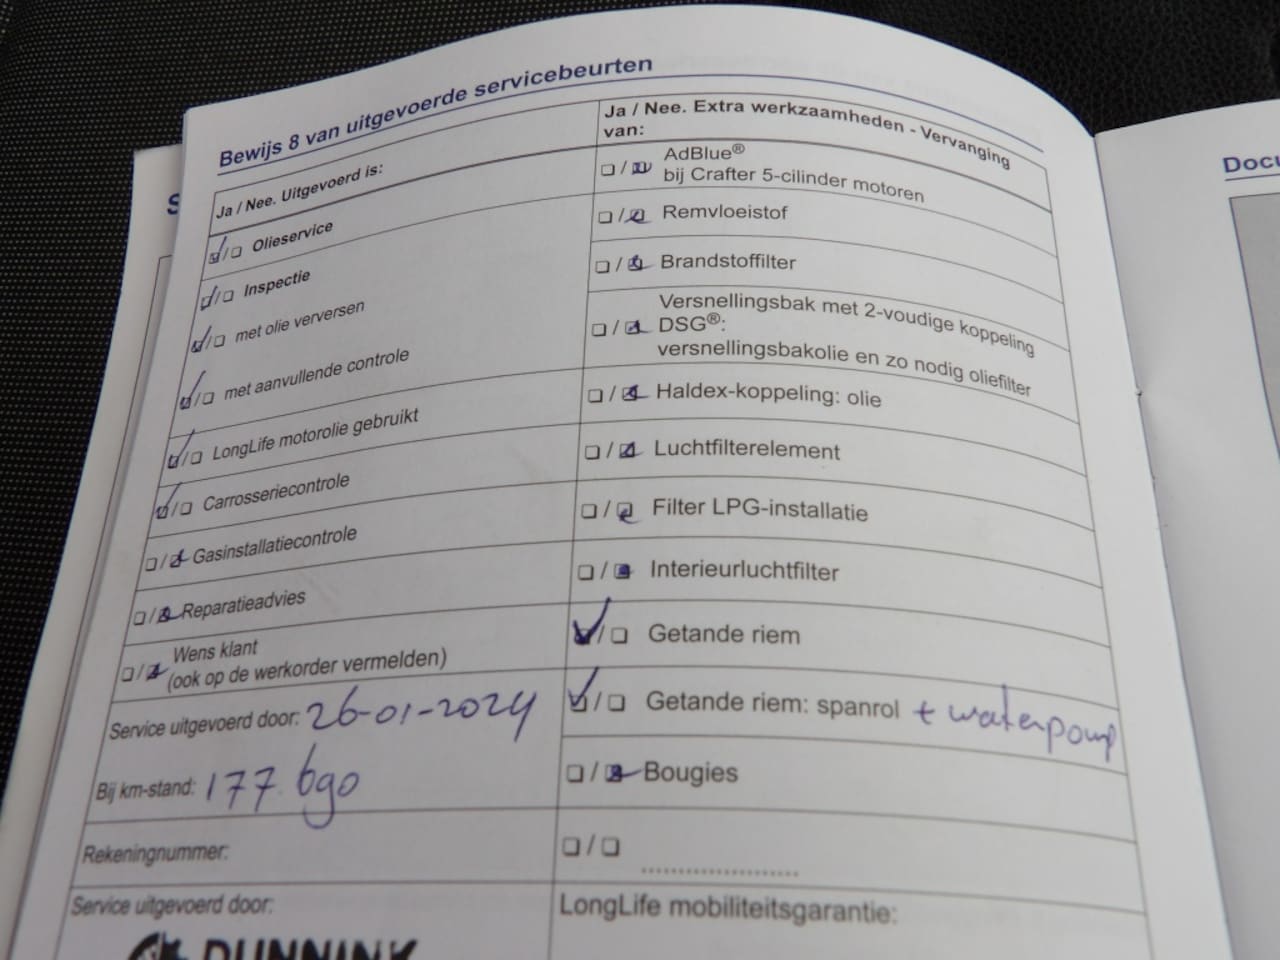 Bewijs 8 van uitgevoerde servicebeurten
Ja / Nee. Uitgevoerd is:
Olieservice
Inspectie
met olie verversen
met aanvullende controle
LongLife motorolie gebruikt
Carrosseriecontrole
Gasinstallatiecontrole
Reparatieadvies
Wens klant
(ook op de werkorder vermelden)
Service uitgevoerd door: 26-01-2024
Bij km-stand: 177.690
Rekeningnummer:
Service uitgevoerd door:
DUNNINK
Ja / Nee. Extra werkzaamheden - Vervanging
van:
AdBlue®
bij Crafter 5-cilinder motoren
Remvloeistof
Brandstoffilter
Versnellingsbak met 2-voudige koppeling
DSG®:
versnellingsbakolie en zo nodig oliefilter
Haldex-koppeling: olie
Luchtfilterelement
Filter LPG-installatie
Interieurluchtfilter
Getande riem
Getande riem: spanrol + waterpomp
Bougies
LongLife mobiliteitsgarantie:
Docu
S